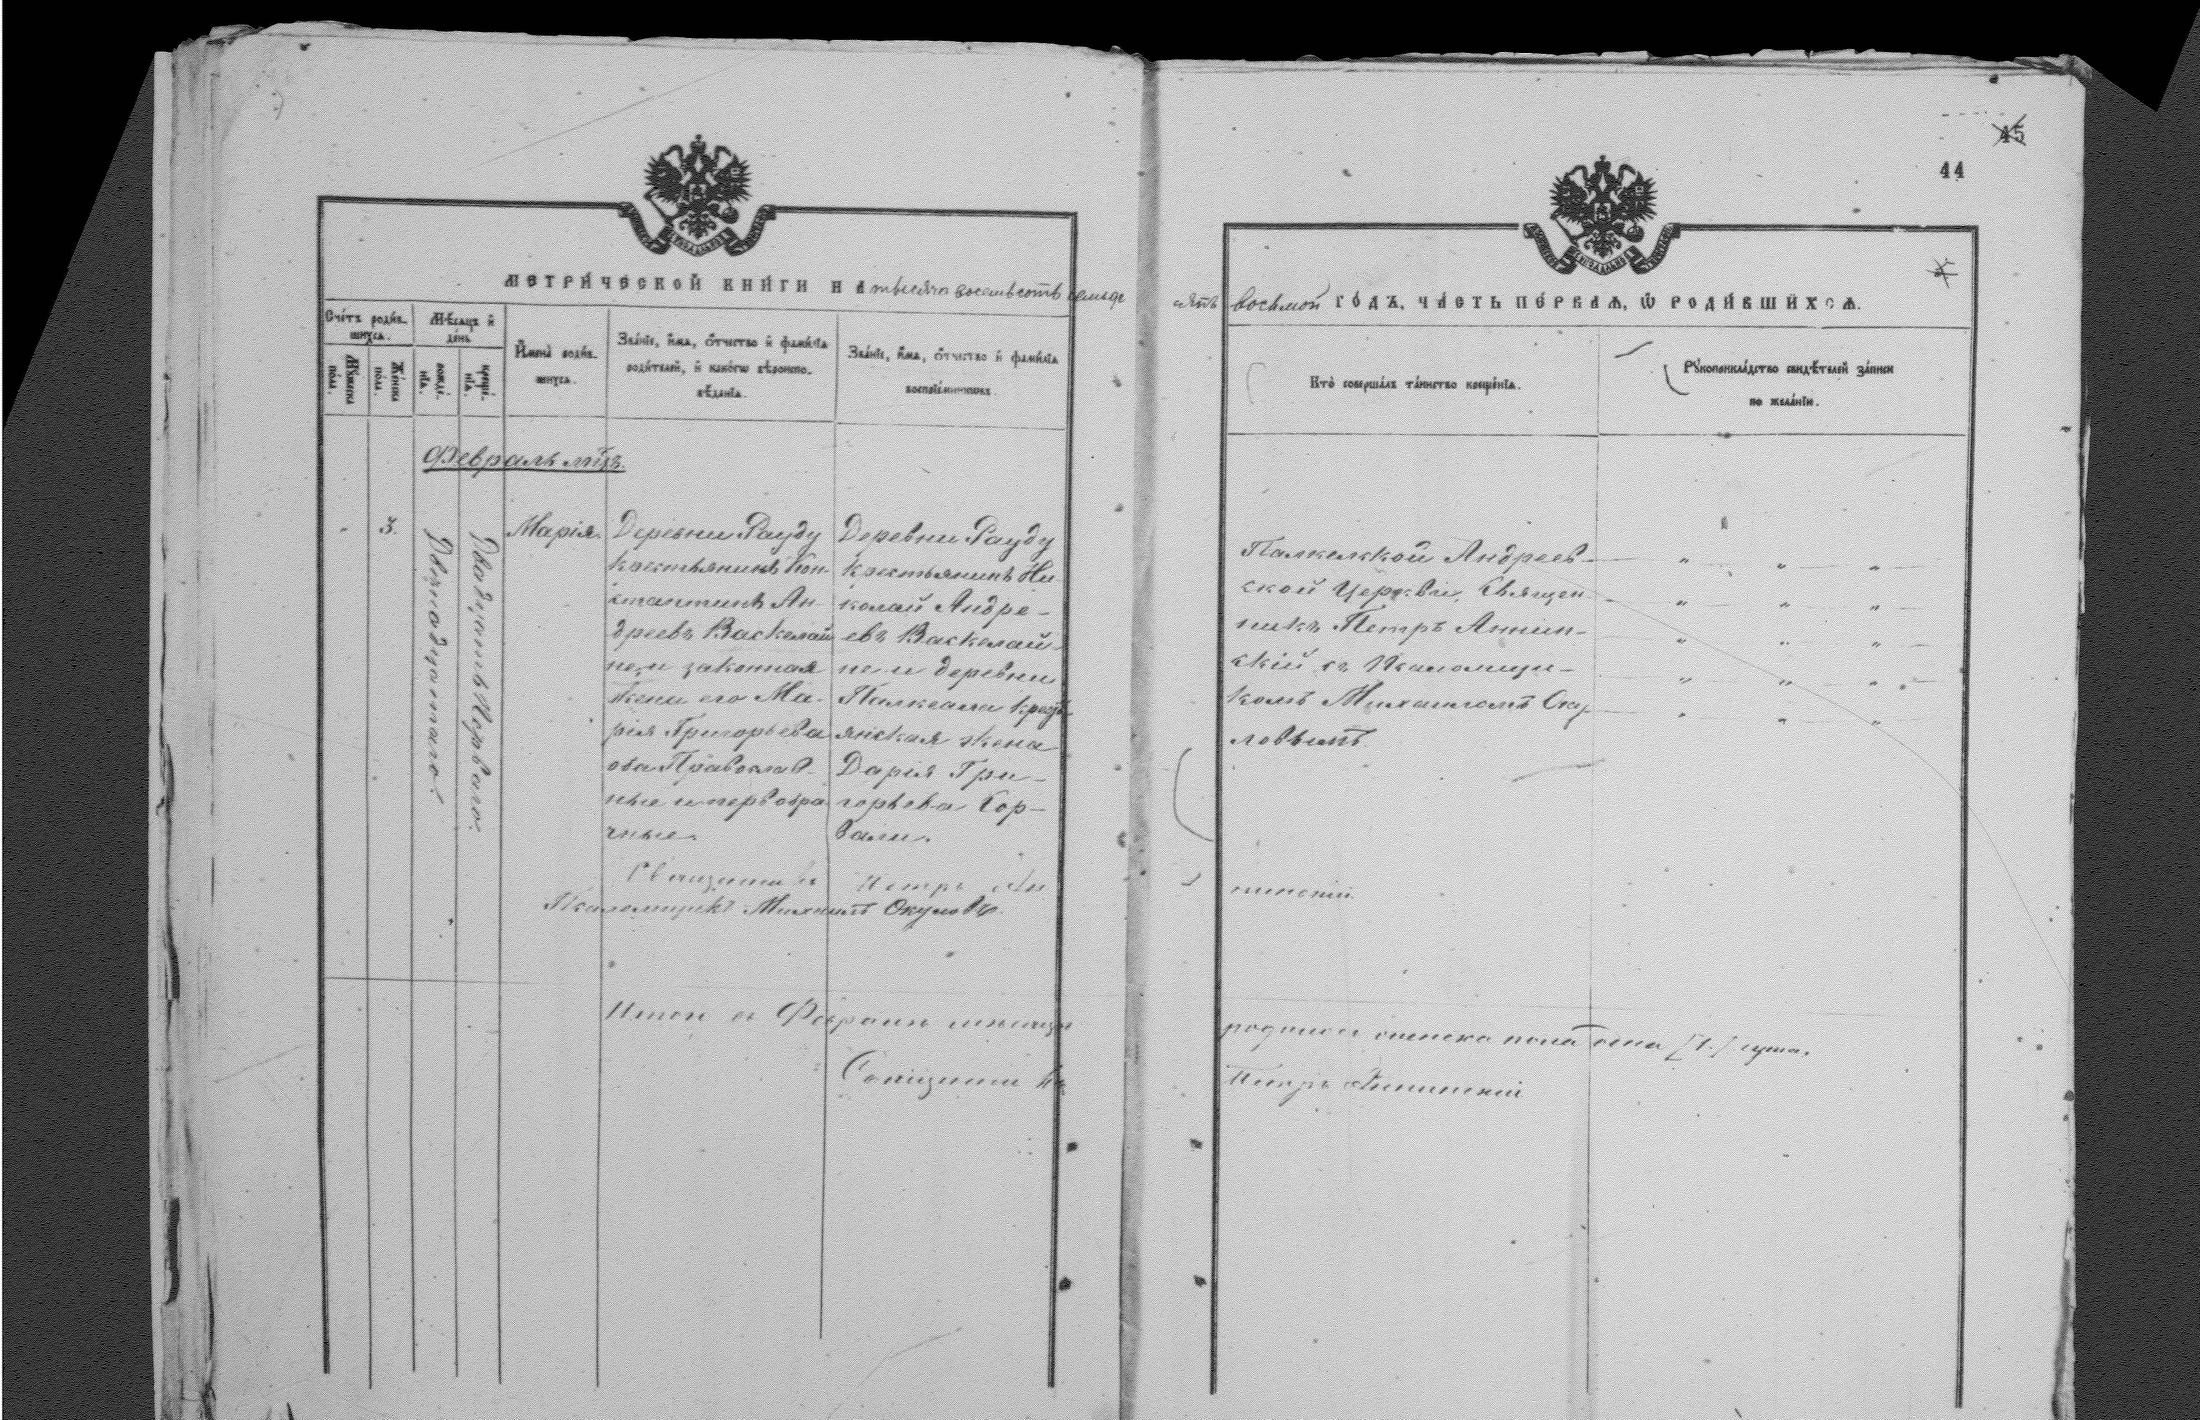 45
44
МЕТРИ́ЧЕСКОЙ КНИ́ГИ НА тысяча восемьсотъ семьде
сятъ восьмой ГО́ДЪ, ЧА́СТЬ ПЕ́РВАЯ, Ѡ РОДИ́ВШИХСЯ.
Сче́тъ роди́в-
шихся.
Му́жеска по́ла.
Же́нска по́ла.
Мѣ́сяцъ и҆
де́нь
рожде́-
нїѧ.
креще́-
нїѧ.
И҆мена̀ роди́в-
шихся.
Зва́нїе, и҆́мѧ, ѻ҆́тчество и҆ фами́лїѧ
роди́телей, и҆ како́гѡ вѣроиспо-
вѣ́данїѧ.
Зва́нїе, и҆́мѧ, ѻ҆́тчество и҆ фами́лїѧ
воспрїе́мниковъ.
Кто̀ соверша́лъ та́инство креще́нїѧ.
Рꙋкоприкла́дство свидѣ́телей за́писи
по жела́нїю.
Февраль мцъ.
" 3.
Двадцатаго.
Двадцать Перваго.
Марія.
Деревни Рауду
Крестьянинъ Кон-
стантинъ Ан-
дреевъ Васкелай
не, и законная
жена его Ма-
рія Григорьева
оба Православ-
ные и первобра
чные.
Деревни Рауду
Крестьянинъ Ни
колай Андре-
евъ Васкелай-
не и деревни
Палкеала Крестъ
янская жена
Дарія Гри-
горьева Кор-
вали.
Палкелской Андреев-
ской Церкви, Священ
никъ Петръ Аннин-
скій съ Псаломщи-
комъ Михаиломъ Оку
ловымъ.
Священникъ Петръ Ан
нинскій.
Псаломщикъ Михаилъ Окуловъ.
Итого въ Февралѣ мѣсяцѣ
родилось женска пола одна [1.] душа.
Священникъ
Петръ Аннинскій